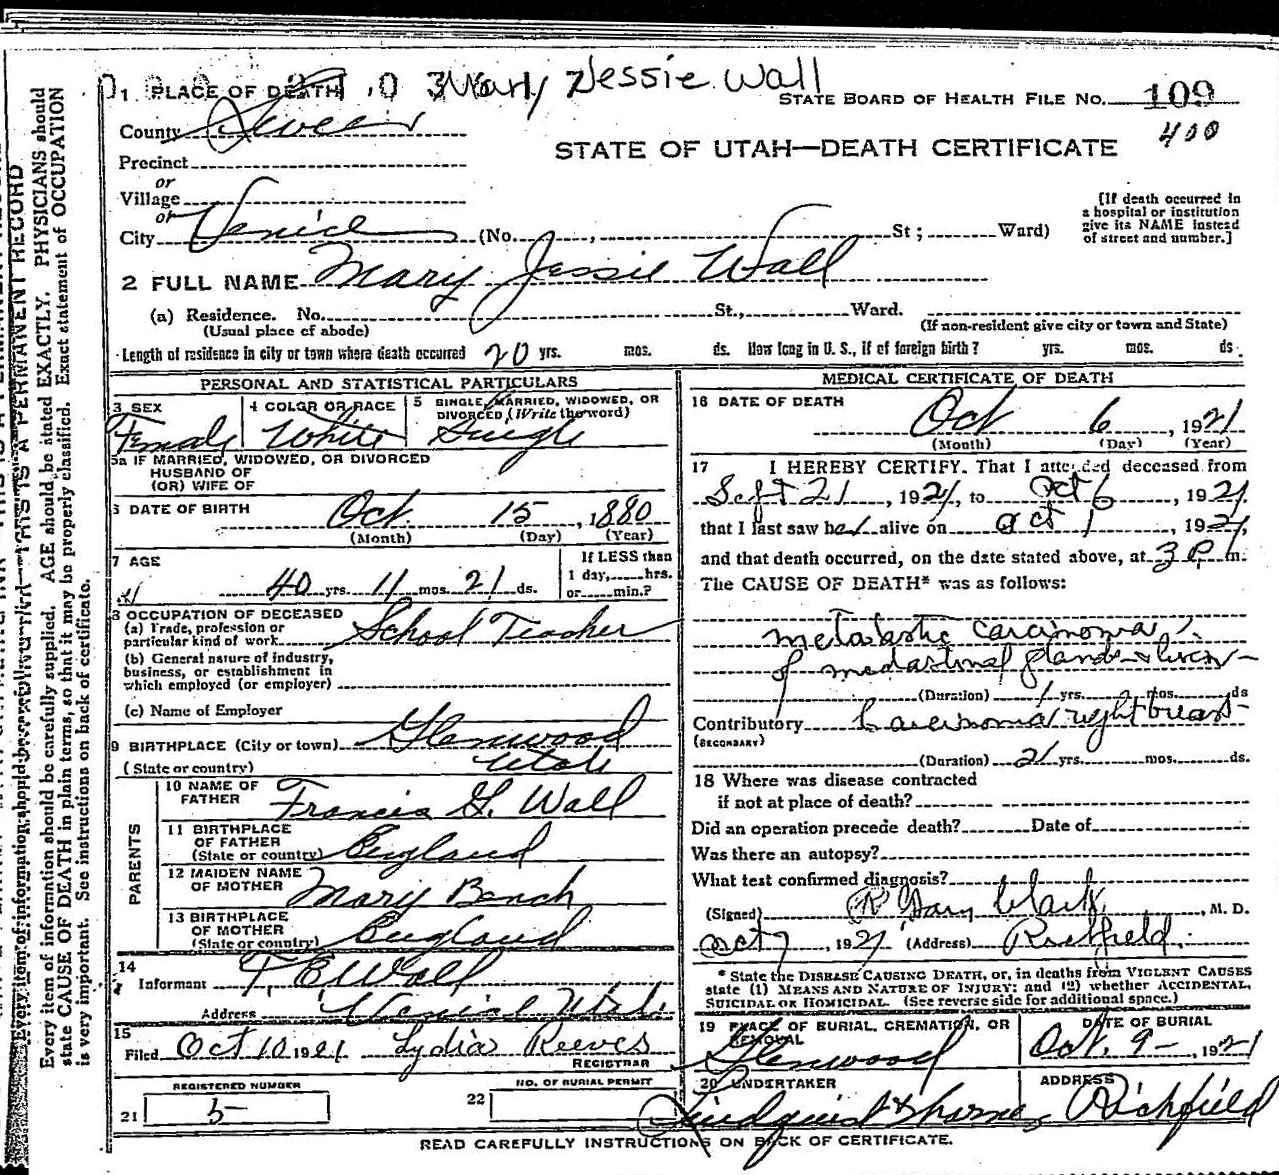 Mary Jessie Wall
1 PLACE OF DEATH
STATE BOARD OF HEALTH FILE No. 109
400
County Sevier
STATE OF UTAH—DEATH CERTIFICATE
Precinct
or
Village
or
City Venice (No. , St ; Ward)
[If death occurred in
a hospital or institution
give its NAME instead
of street and number.]
2 FULL NAME Mary Jessie Wall
(a) Residence. No. St., Ward.
(Usual place of abode) (If non-resident give city or town and State)
Length of residence in city or town where death occurred 20 yrs. mos. ds. How long in U. S., if of foreign birth? yrs. mos. ds.
PERSONAL AND STATISTICAL PARTICULARS
3 SEX Female
4 COLOR OR RACE White
5 SINGLE, MARRIED, WIDOWED, OR
DIVORCED (Write the word) Single
5a IF MARRIED, WIDOWED, OR DIVORCED
HUSBAND OF
(OR) WIFE OF
6 DATE OF BIRTH Oct. 15, 1880
(Month) (Day) (Year)
7 AGE
40 yrs. 11 mos. 21 ds.
If LESS than
1 day, hrs.
or min.?
8 OCCUPATION OF DECEASED
(a) Trade, profession or
particular kind of work School Teacher
(b) General nature of industry,
business, or establishment in
which employed (or employer)
(c) Name of Employer
9 BIRTHPLACE (City or town) Glenwood
(State or country) Utah
PARENTS
10 NAME OF
FATHER Francis G. Wall
11 BIRTHPLACE
OF FATHER
(State or country) England
12 MAIDEN NAME
OF MOTHER Mary Bench
13 BIRTHPLACE
OF MOTHER
(State or country) England
14
Informant T. E Wall
Address Venice Utah
15
Filed Oct 10 1921 Lydia Reeves
REGISTRAR
REGISTERED NUMBER
21 5
NO. OF BURIAL PERMIT
22
MEDICAL CERTIFICATE OF DEATH
16 DATE OF DEATH
Oct 6, 1921
(Month) (Day) (Year)
17 I HEREBY CERTIFY. That I attended deceased from
Sept 21, 1921, to Oct 6, 1921
that I last saw her alive on Oct 1, 1921,
and that death occurred, on the date stated above, at 3 P. m.
The CAUSE OF DEATH* was as follows:
metastatic carcinoma
of mediastinal glands & liver
(Duration) 1 yrs. mos. ds
Contributory Carcinoma right breast
(SECONDARY)
(Duration) 2 yrs. mos. ds.
18 Where was disease contracted
if not at place of death?
Did an operation precede death? Date of
Was there an autopsy?
What test confirmed diagnosis?
(Signed) R Gary Clark, M. D.
Oct 7, 1921 (Address) Richfield.
* State the DISEASE CAUSING DEATH, or, in deaths from VIOLENT CAUSES
state (1) MEANS AND NATURE OF INJURY; and (2) whether ACCIDENTAL,
SUICIDAL OR HOMICIDAL. (See reverse side for additional space.)
19 PLACE OF BURIAL, CREMATION, OR
REMOVAL
Glenwood
DATE OF BURIAL
Oct. 9-, 1921
20 UNDERTAKER
ADDRESS Richfield
READ CAREFULLY INSTRUCTIONS ON BACK OF CERTIFICATE.
Every item of information should be carefully supplied. AGE should be stated EXACTLY. PHYSICIANS should
state CAUSE OF DEATH in plain terms, so that it may be properly classified. Exact statement of OCCUPATION
is very important. See instructions on back of certificate.